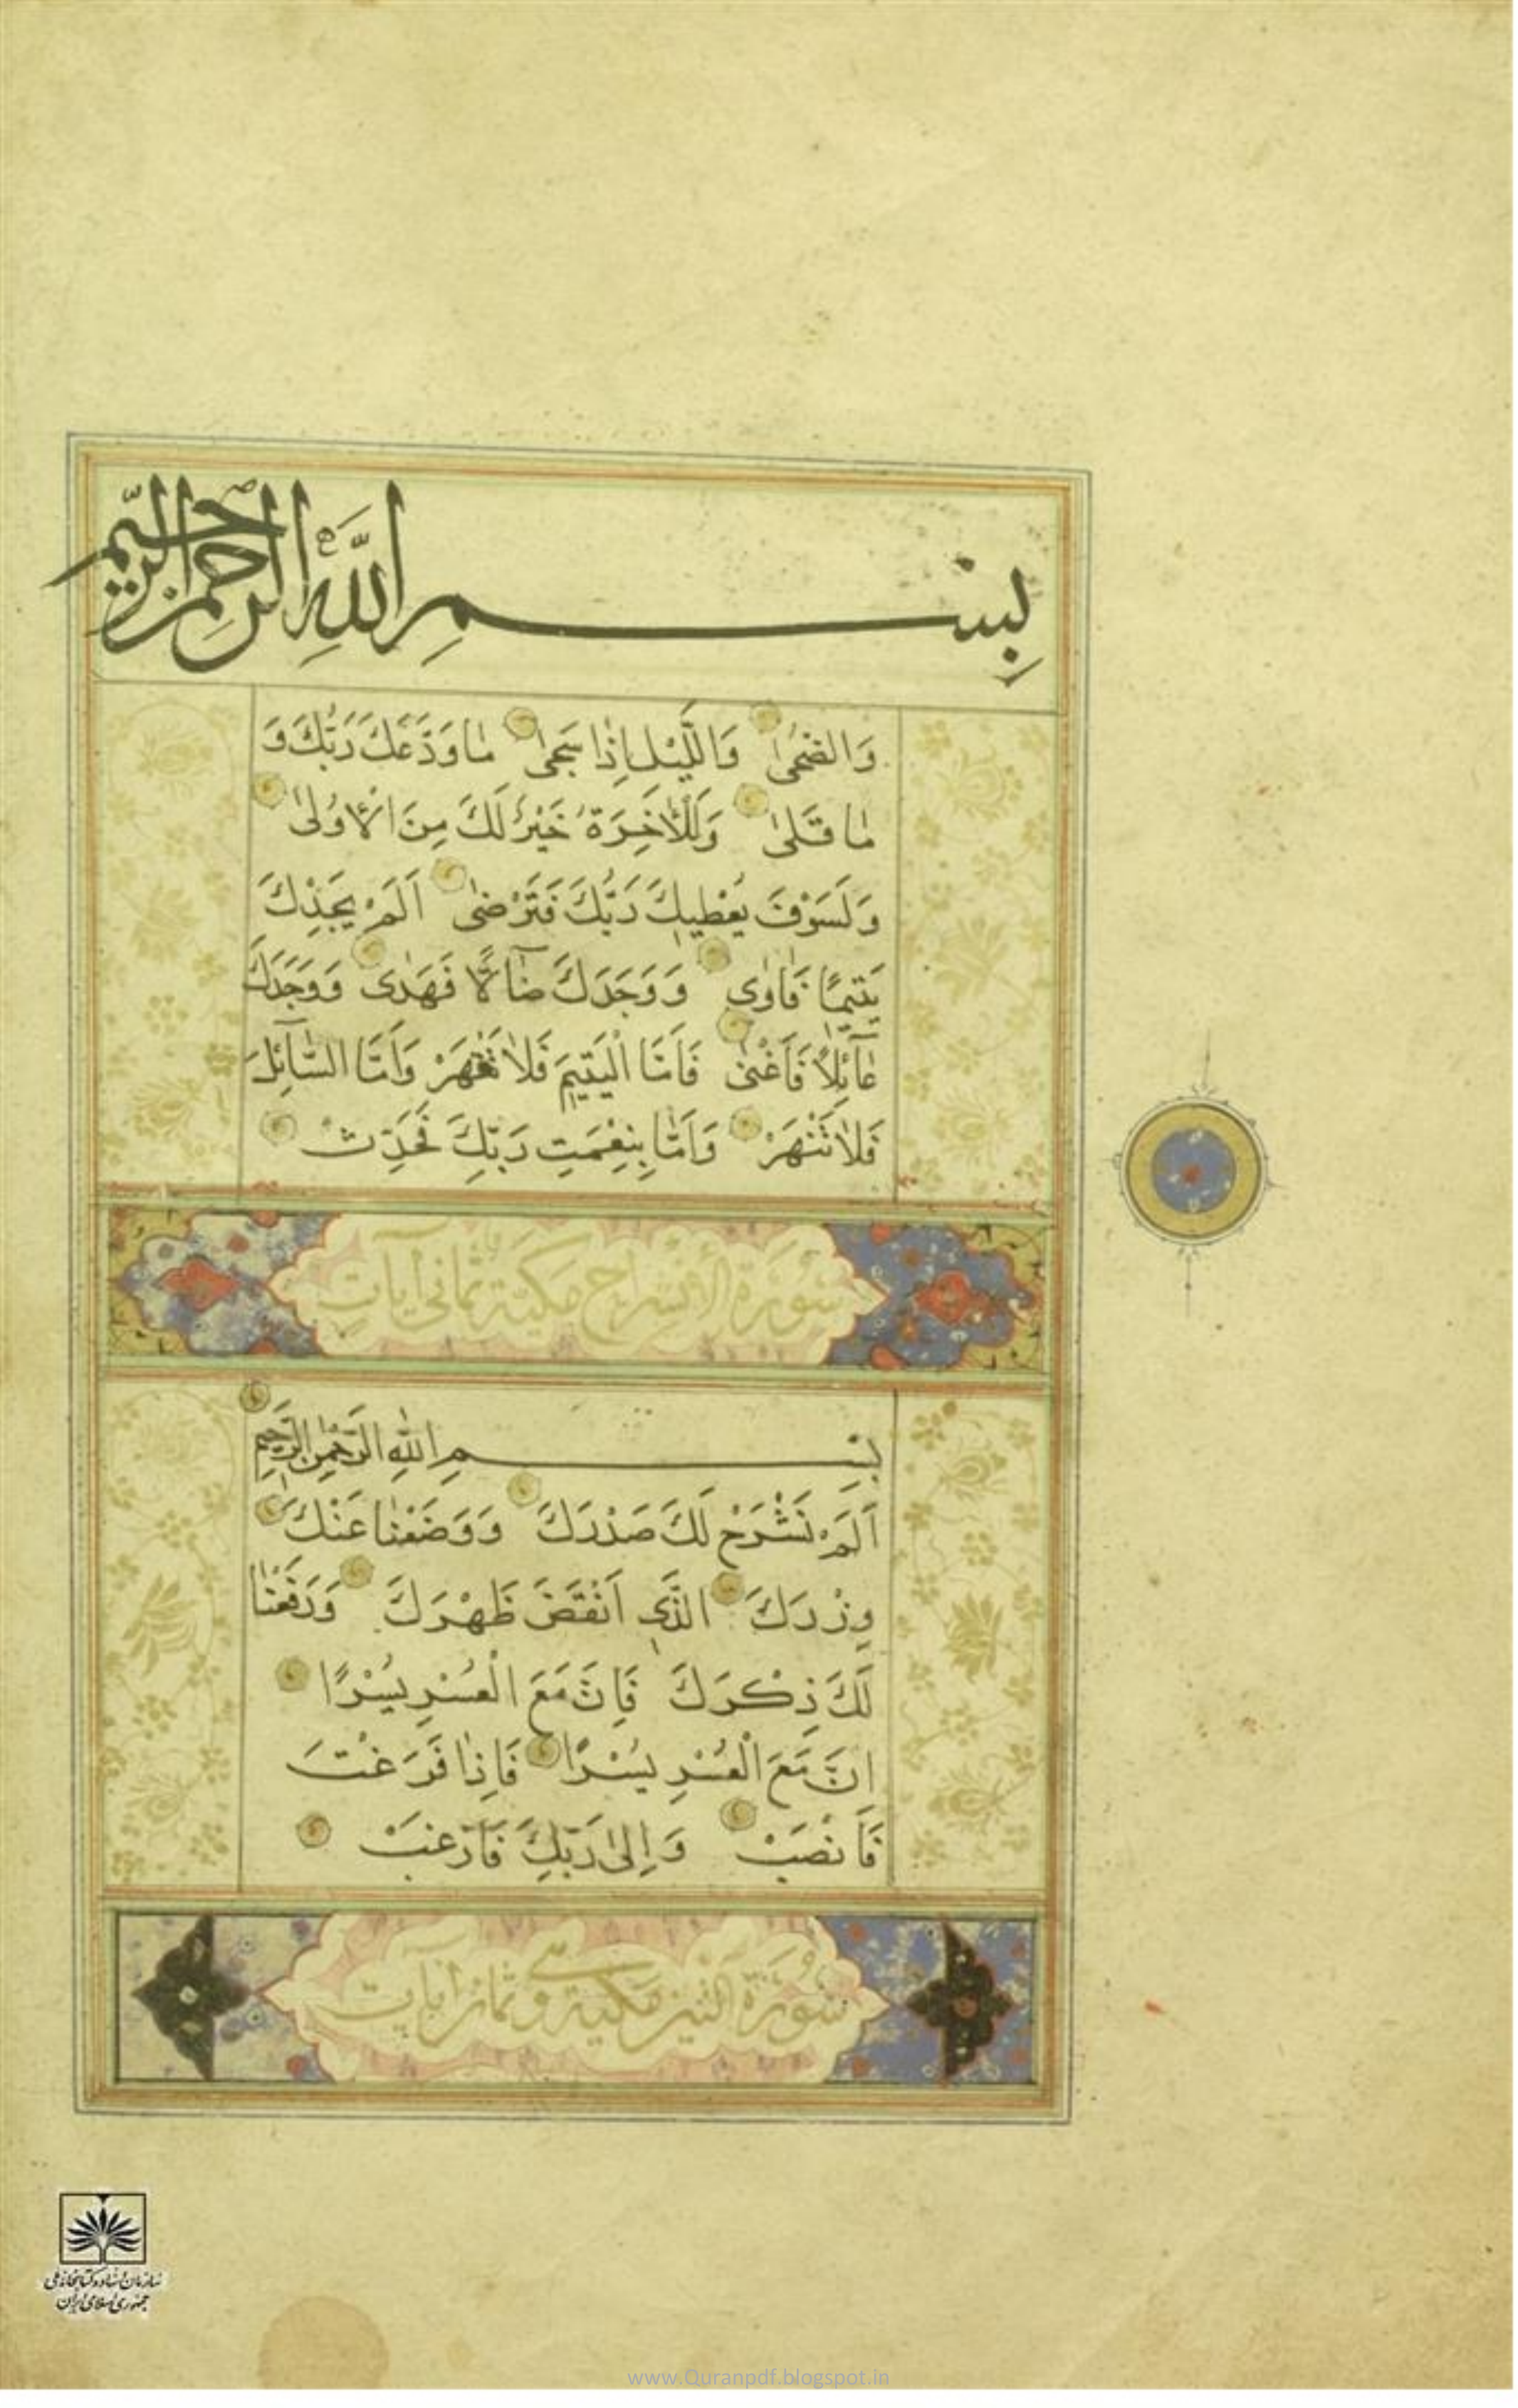 بِسْمِ اللَّهِ الرَّحْمٰنِ الرَّحِيمِ
وَالضُّحٰى وَاللَّيْلِ اِذَا سَجٰى مٰا وَدَّعَكَ رَبُّكَ وَ
مٰا قَلٰى وَلَلْاٰخِرَةُ خَيْرٌ لَكَ مِنَ الْاُولٰى
وَلَسَوْفَ يُعْطِيكَ رَبُّكَ فَتَرْضٰى اَلَمْ يَجِدْكَ
يَتِيمًا فَاٰوٰى وَوَجَدَكَ ضٰآلًّا فَهَدٰى وَوَجَدَكَ
عٰآئِلاً فَاَغْنٰى فَاَمَّا الْيَتِيمَ فَلاٰ تَقْهَرْ وَاَمَّا السَّآئِلَ
فَلاٰ تَنْهَرْ وَاَمّٰا بِنِعْمَتِ رَبِّكَ فَحَدِّثْ
سُورَة الانشراح مكية ثماني آيات
بِسْمِ اللهِ الرَّحْمٰنِ الرَّحِيمِ
اَلَمْ نَشْرَحْ لَكَ صَدْرَكَ وَوَضَعْنٰا عَنْكَ
وِزْرَكَ الَّذِي اَنْقَضَ ظَهْرَكَ وَرَفَعْنٰا
لَكَ ذِكْرَكَ فَاِنَّ مَعَ الْعُسْرِ يُسْرًا
اِنَّ مَعَ الْعُسْرِ يُسْرًا فَاِذٰا فَرَغْتَ
فَانْصَبْ وَاِلٰى رَبِّكَ فَارْغَبْ
سُورَة التين مكية وثمان آيات
سازمان اسناد و کتابخانه ملی
جمهوری اسلامی ایران
www.Quranpdf.blogspot.in